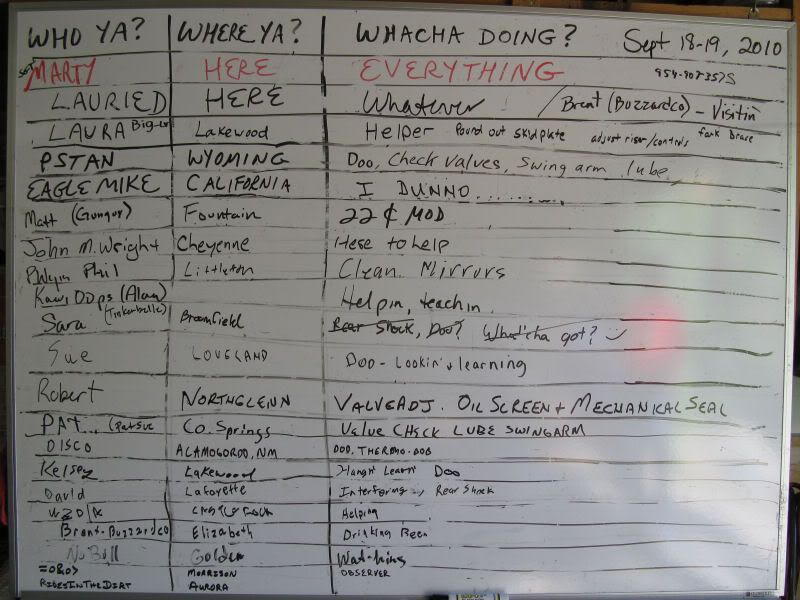 WHO YA? WHERE YA? WHACHA DOING? Sept 18-19, 2010
MARTY HERE EVERYTHING
LAURIED HERE Whatever / Brent (Buzzardco) - Visitin
LAURA Lakewood Helper Pound out skidplate adjust riser/controls fork brace
PSTAN WYOMING Doo, Check valves, Swing arm lube
EAGLE MIKE CALIFORNIA I DUNNO..........
Matt (Gunguy) Fountain 22¢ MOD
John M. Wright Cheyenne Here to help
Phil Littleton Clean Mirrors
(Alan) Helpin, teachin.
Sara (Tinkerbelle) Broomfield Rear Shock, Doo? What'cha got?
Sue LOVELAND DOO - Lookin' & learning
Robert NORTHGLENN VALVE ADJ. OIL SCREEN + MECHANICAL SEAL
PAT... (PatSue Co. Springs VALVE CHECK LUBE SWINGARM
DISCO ALAMOGORDO, NM DOO. THERMO-BOB
Kelsey Lakewood Hangn' Learn' Doo
David Lafayette Interfering.., Rear Shock
CASTLE ROCK Helping
Brent-Buzzardco Elizabeth Drinking Beer
No Bull Golden
=o&o> MORRISON OBSERVER
RIDESINTHEDIRT AURORA